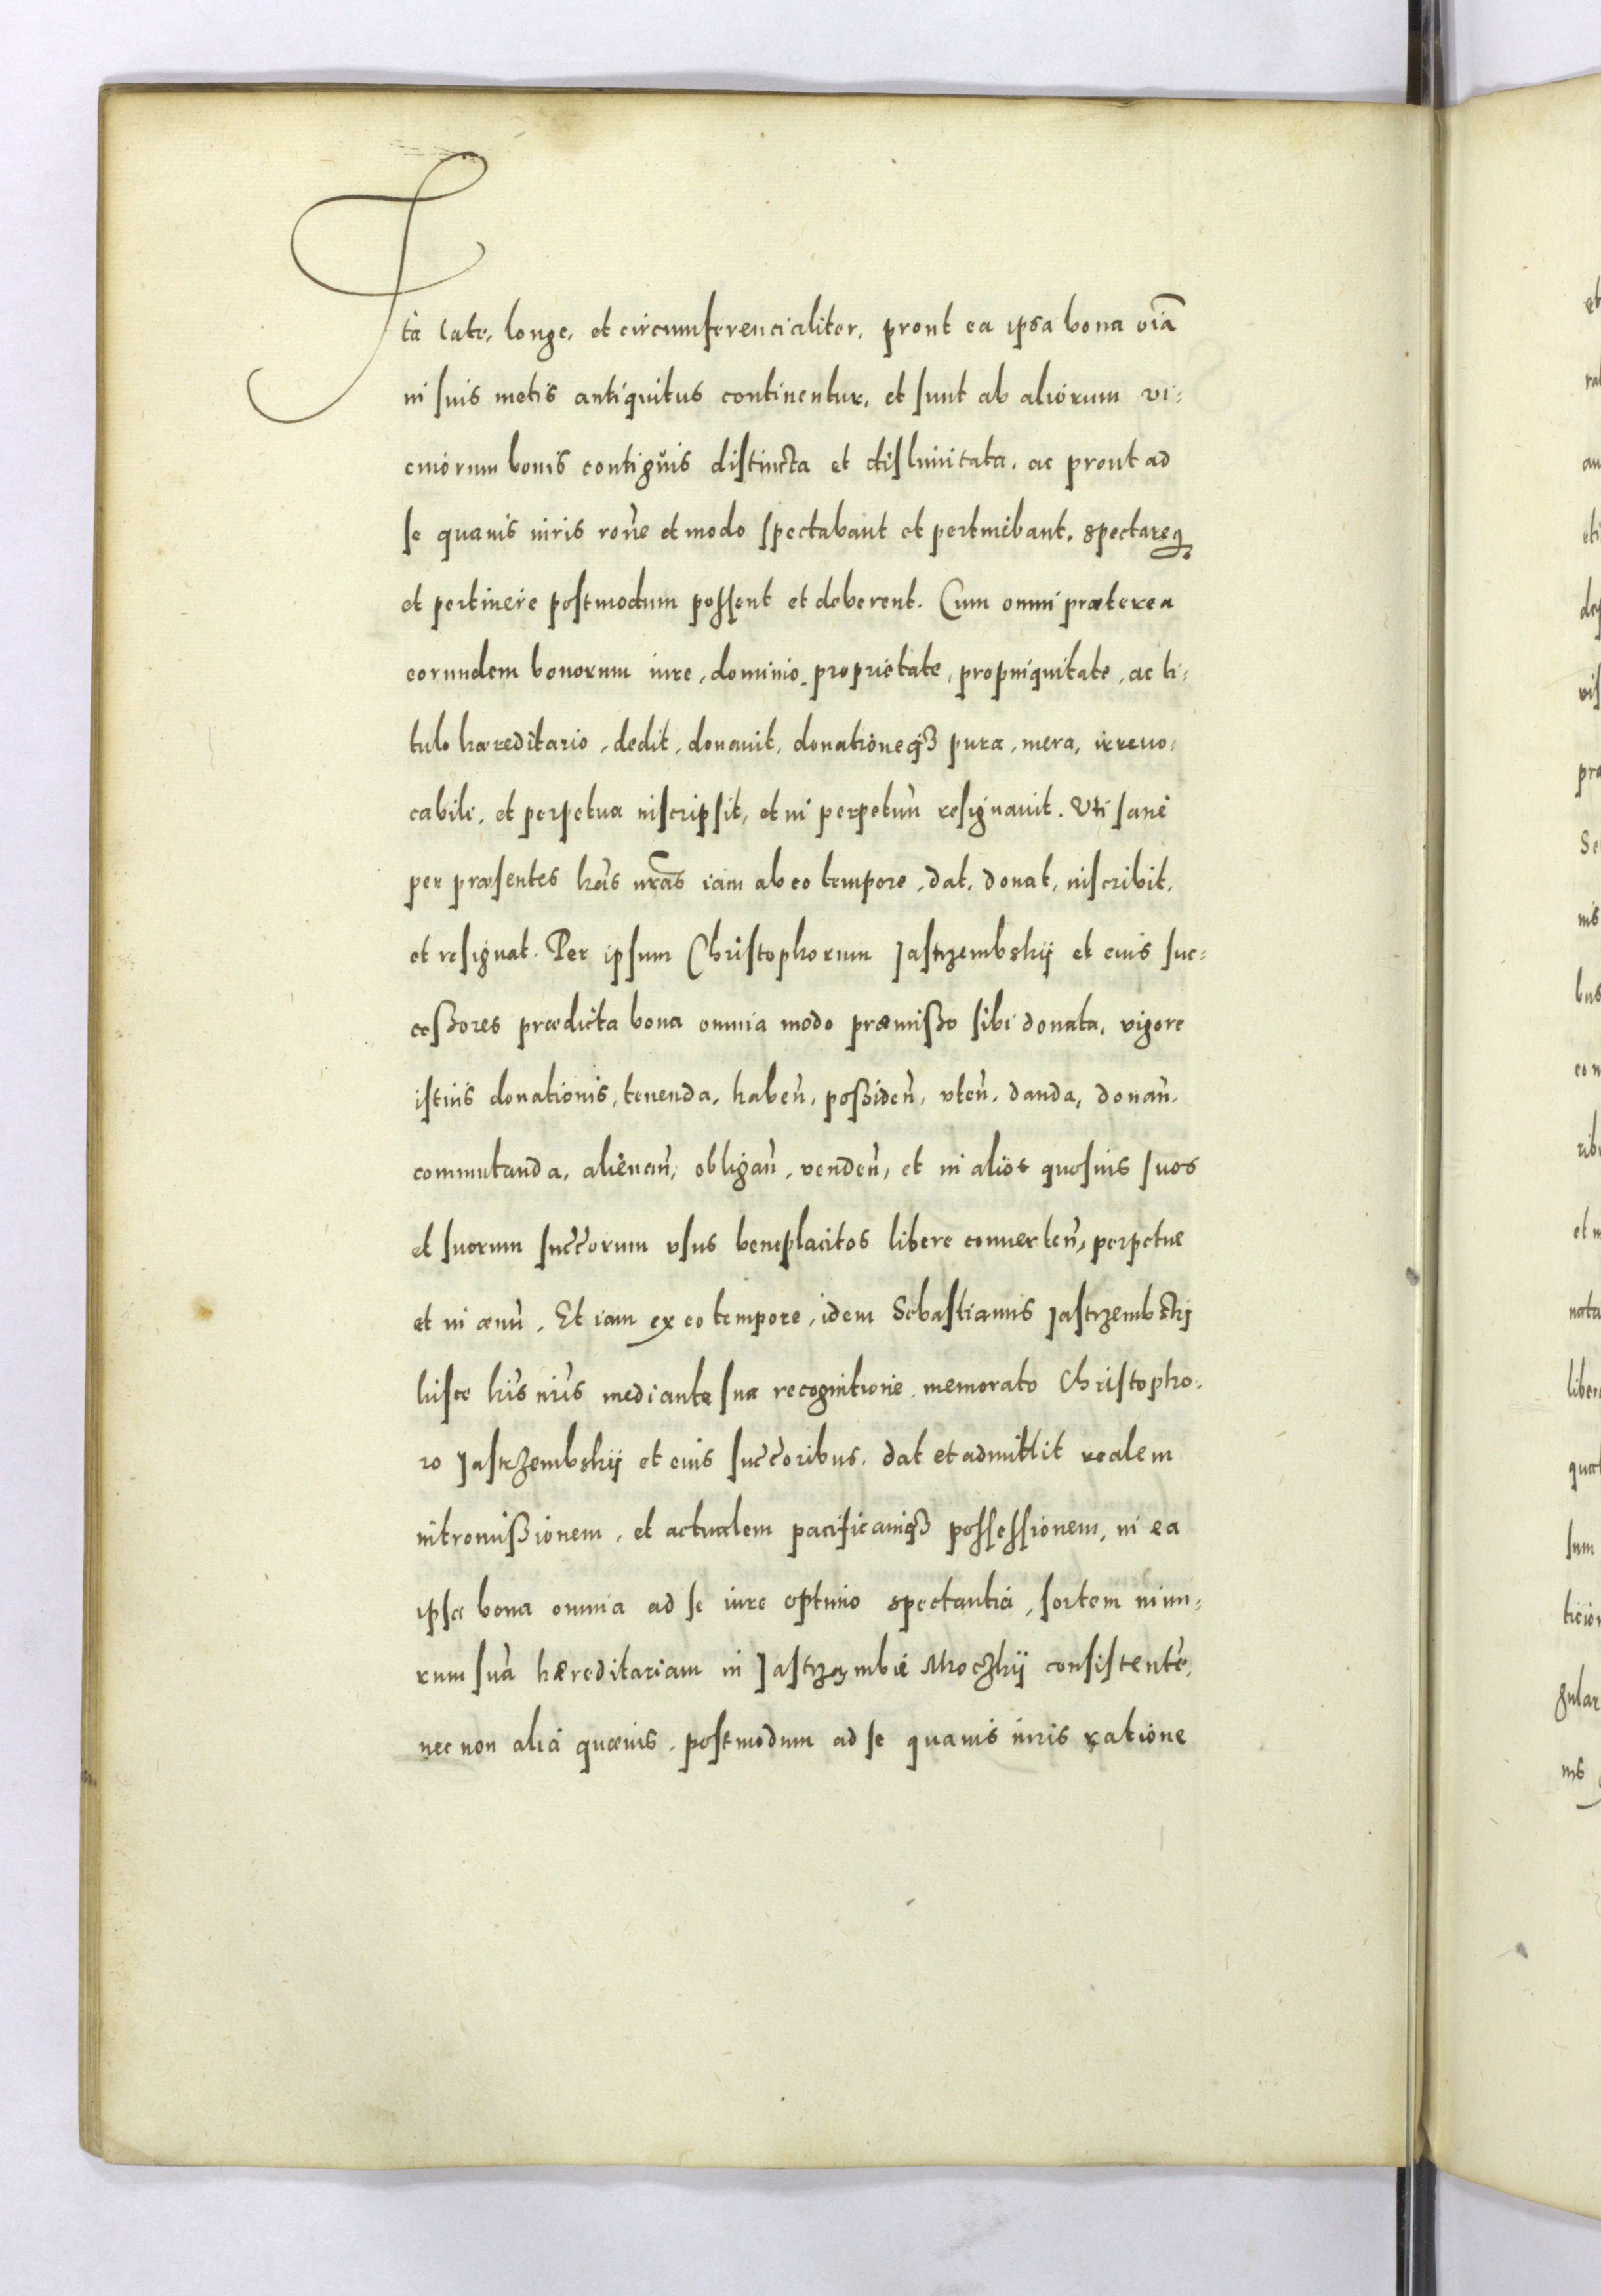 Ita late, longe, et circumferencialiter, prout ea ipsa bona oı͠a
in suis metis antiquitus continentur, et sunt ab aliorum vi:
cinorum bonis contiguis distincta et dislimitata, ac prout ad
se quauis iuris rõne et modo spectabant et pertinebant, spectareq́₃
et pertinere postmodum possent et deberent. Cum omni præterea
eorundem bonorum iure, dominio, proprietate, propinquitate, ac ti:
tulo hæreditario, dedit, donauit, donationeq́₃ pura, mera, irreuo:
cabili, et perpetua inscripsit, et in perpetuũ resignauit. Uti sane
per præsentes lr̃as nr̃as iam ab eo tempore, dat, donat, inscribit,
et resignat. Per ipsum Christophorum Jastrzembskij et eius suc:
cessores prædicta bona omnia modo præmisso sibi donata, vigore
istius donationis, tenenda, habeñ, possideñ, vteñ, danda, donañ,
commutanda, alienañ, obligañ, vendeñ, et in alios quosuis suos
et suorum succ̃orum vsus beneplacitos libere conuerteñ, perpetue
et in æuũ. Et iam ex eo tempore, idem Sebastianus Jastrzembskj
hisce lr̃is nr̃is mediante sua recognitione, memorato Christopho:
ro Jastrzembskij et eius succ̃oribus, dat et admittit realem
intromissionem, et actualem pacificamq́₃ possessionem, in ea
ipsa bona omnia ad se iure optimo spectantia, sortem nimi:
rum suã hæreditariam in Jastrzembie Mroczkij consistentẽ,
nec non alia quæuis, postmodum ad se quauis iuris ratione